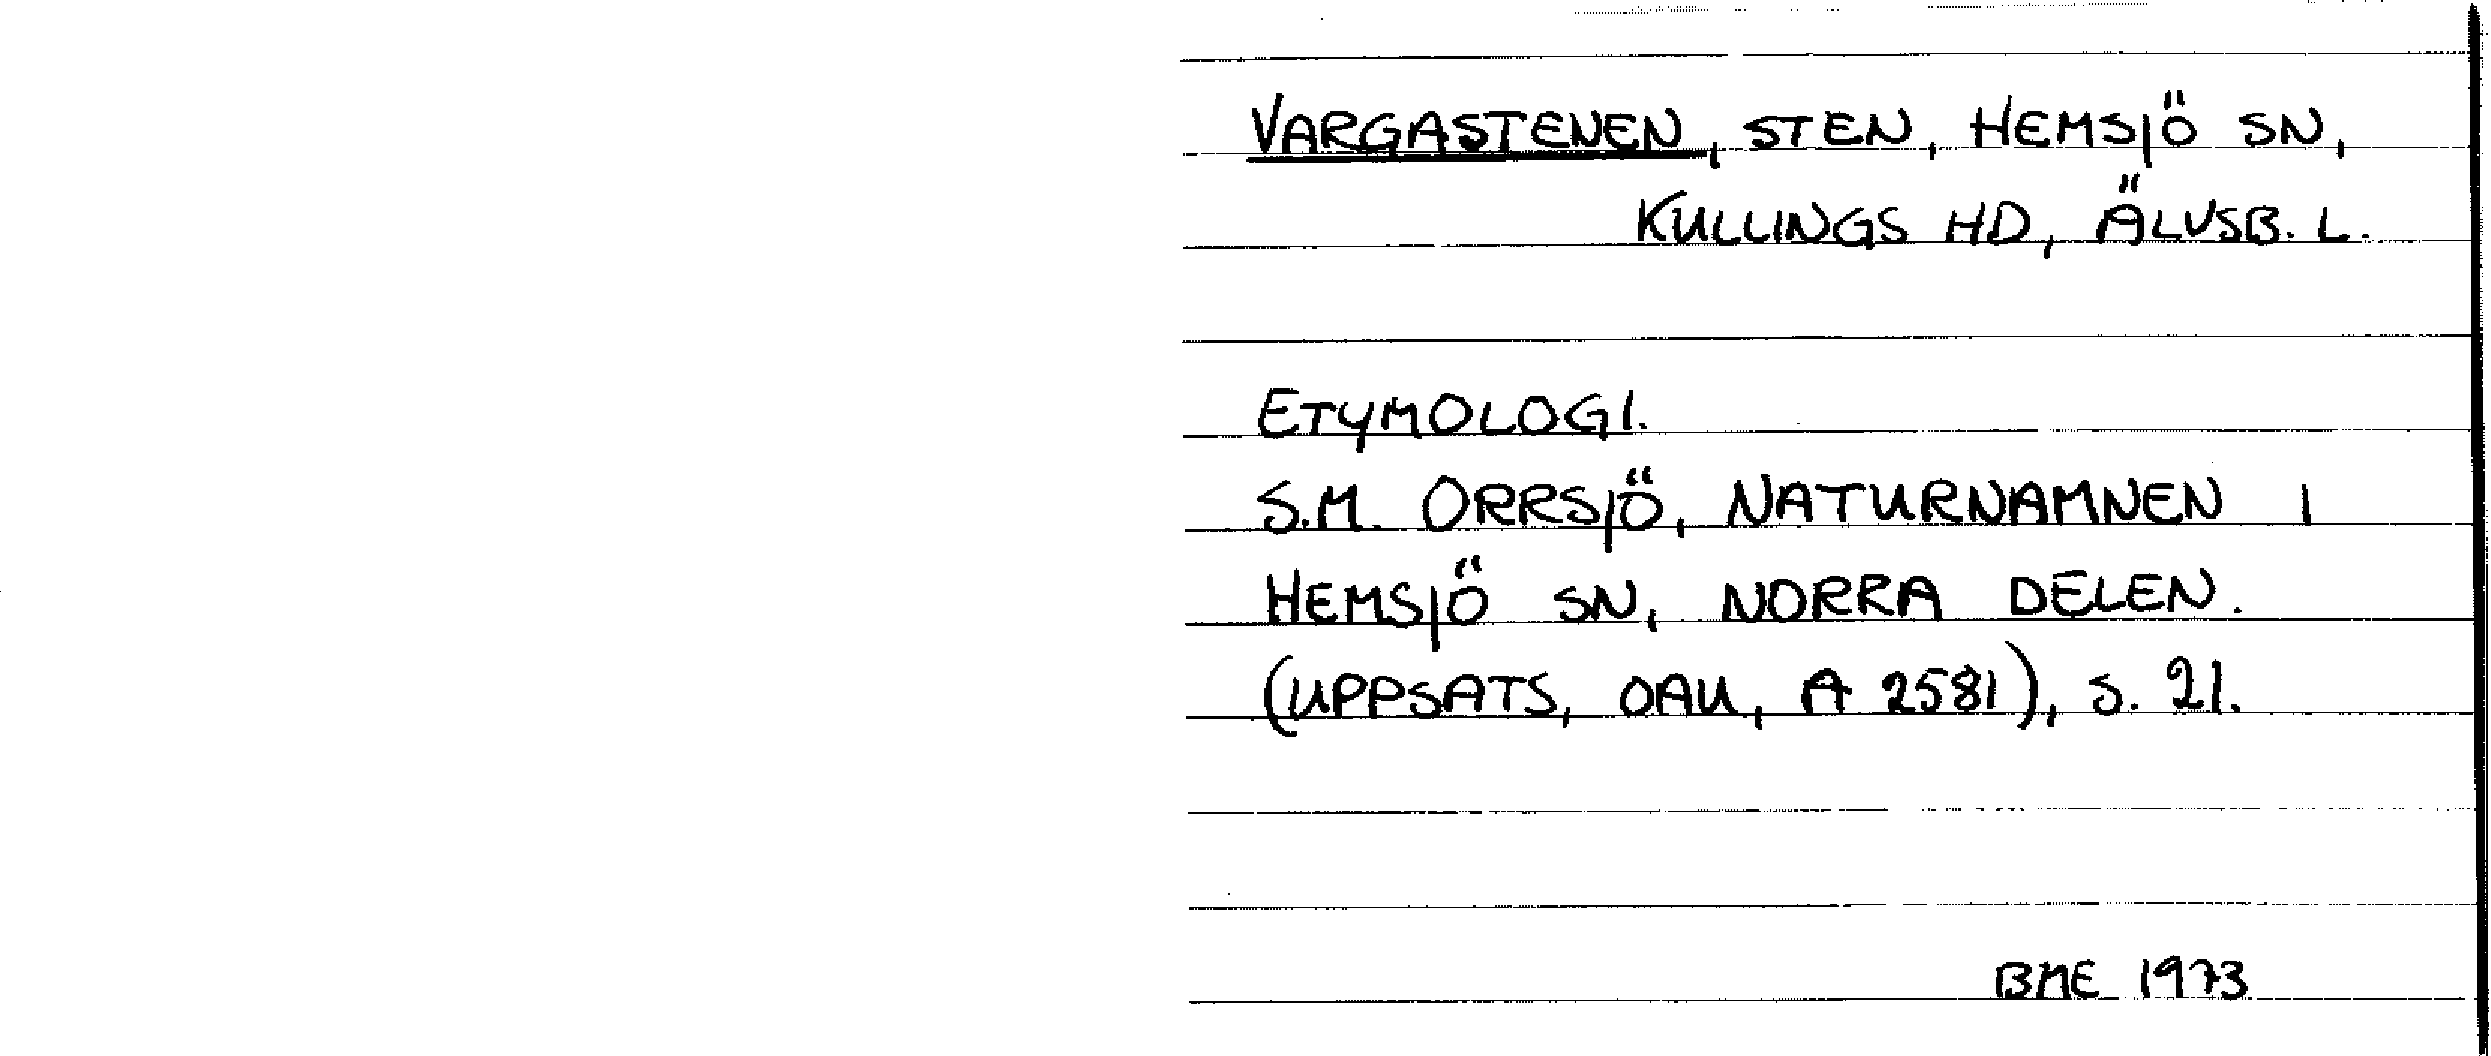 VARGASTENEN, STEN, HEMSJÖ SN,
KULLINGS HD, ÄLVSB. L.
ETYMOLOGI.
S.M. ORRSJÖ, NATURNAMNEN I
HEMSJÖ SN, NORRA DELEN.
(UPPSATS, OAU, A 2581), S. 21.
BME 1973